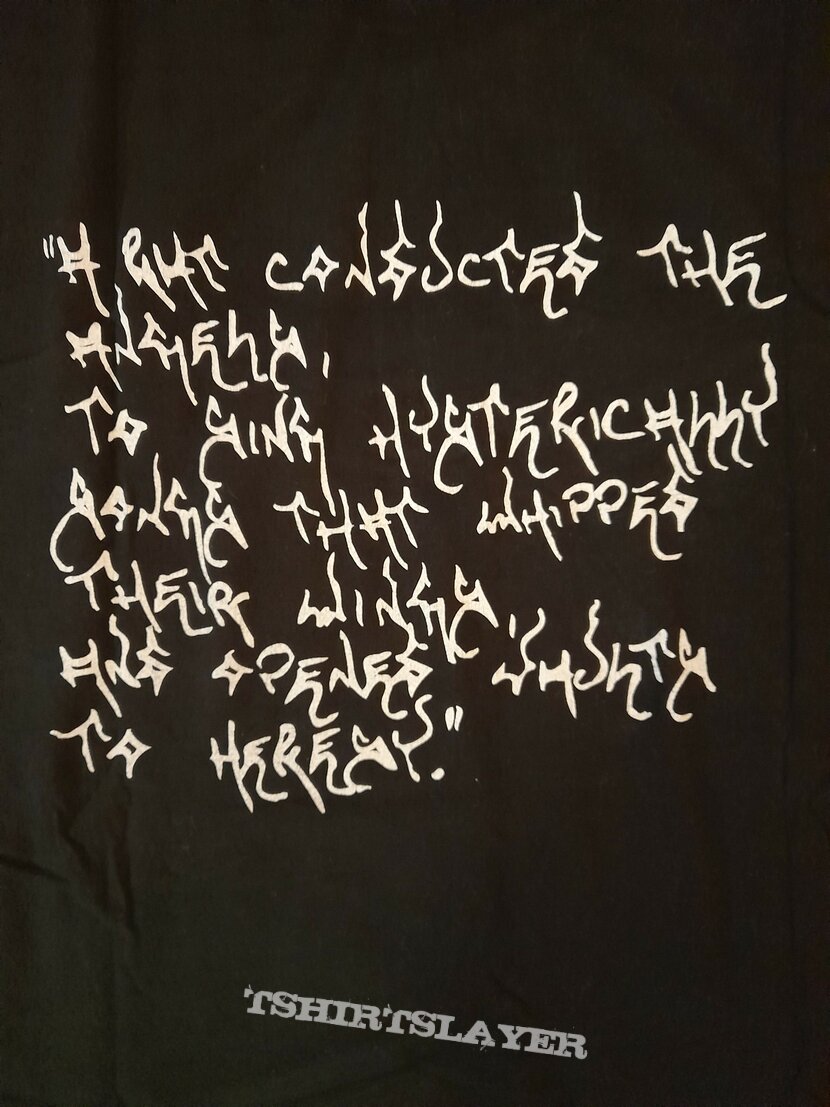 "A RAT CONDUCTED THE
ANGELS,
TO SING HYSTERICALLY
SONGS THAT WHIPPED
THEIR WINGS
AND OPENED VAULTS
TO HERESY."
TSHIRTSLAYER